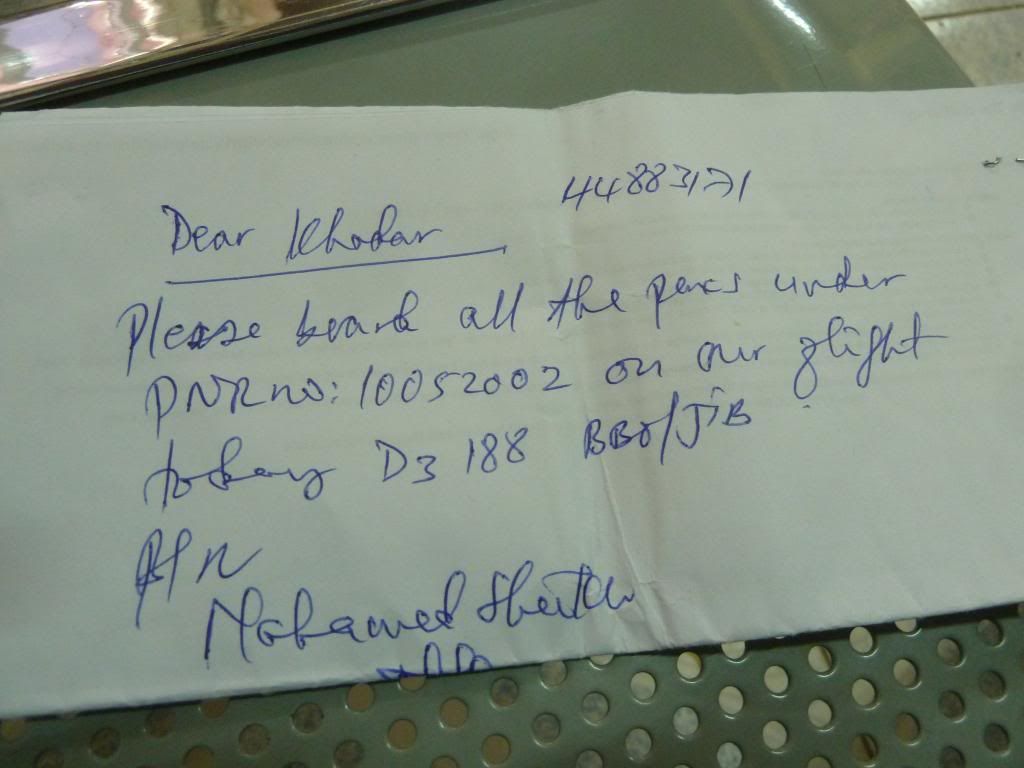 44883171
Dear Khadar
Please board all the paxs under
PNR no: 10052002 on our flight
today D3 188 BBO/JIB
Mohamed Sheikh